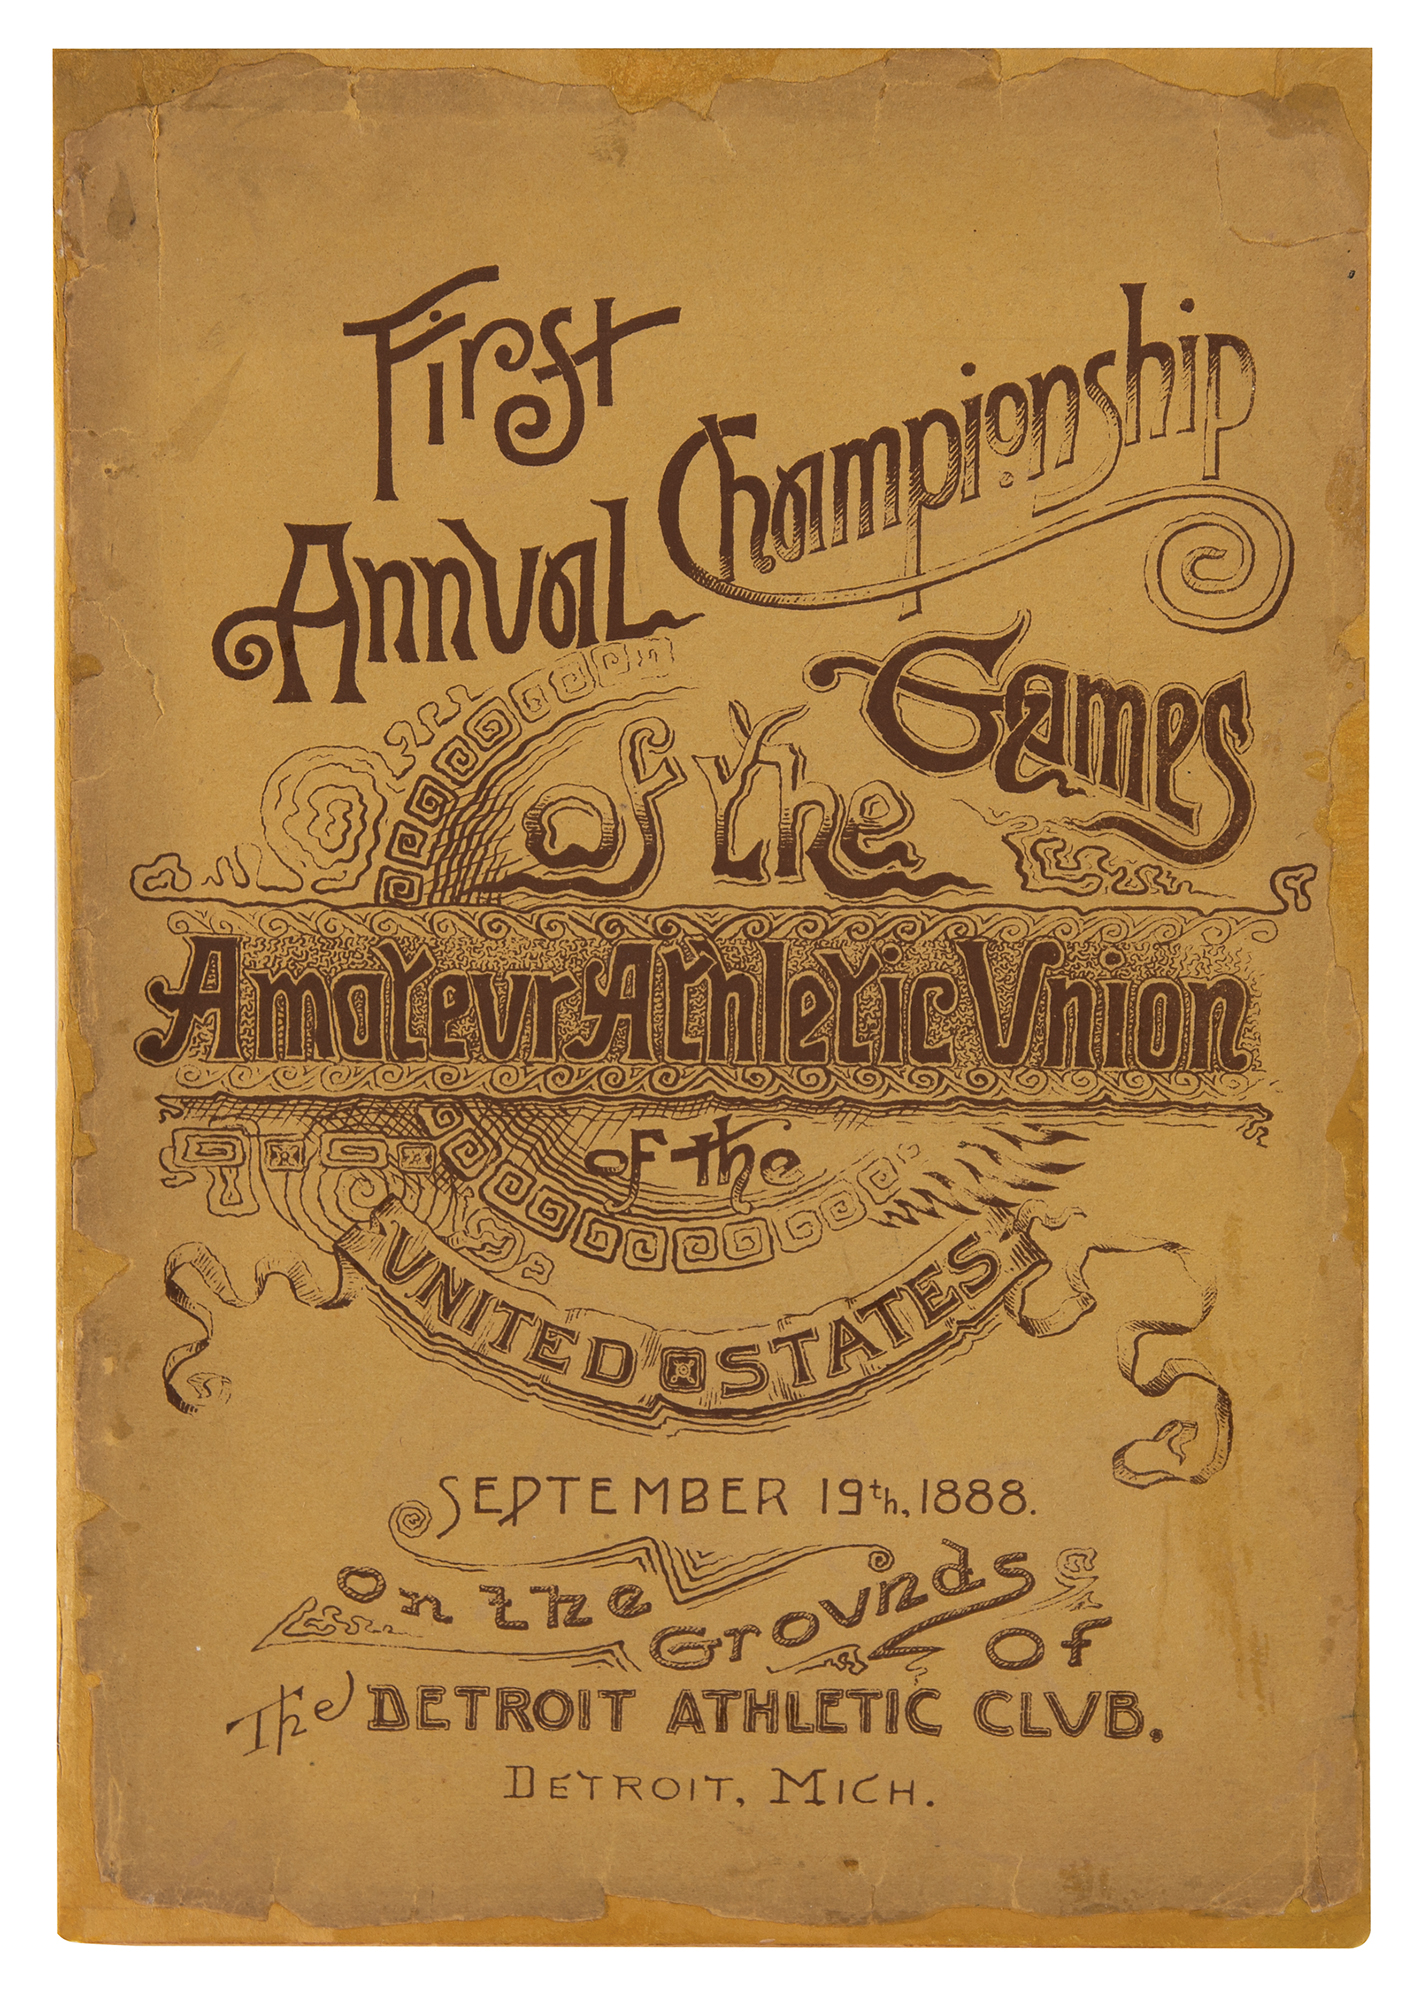 First
Annual
Championship
Games
of the
Amateur Athletic Union
of the
UNITED STATES
SEPTEMBER 19th, 1888.
on the
Grounds
of
The DETROIT ATHLETIC CLVB.
DETROIT, MICH.